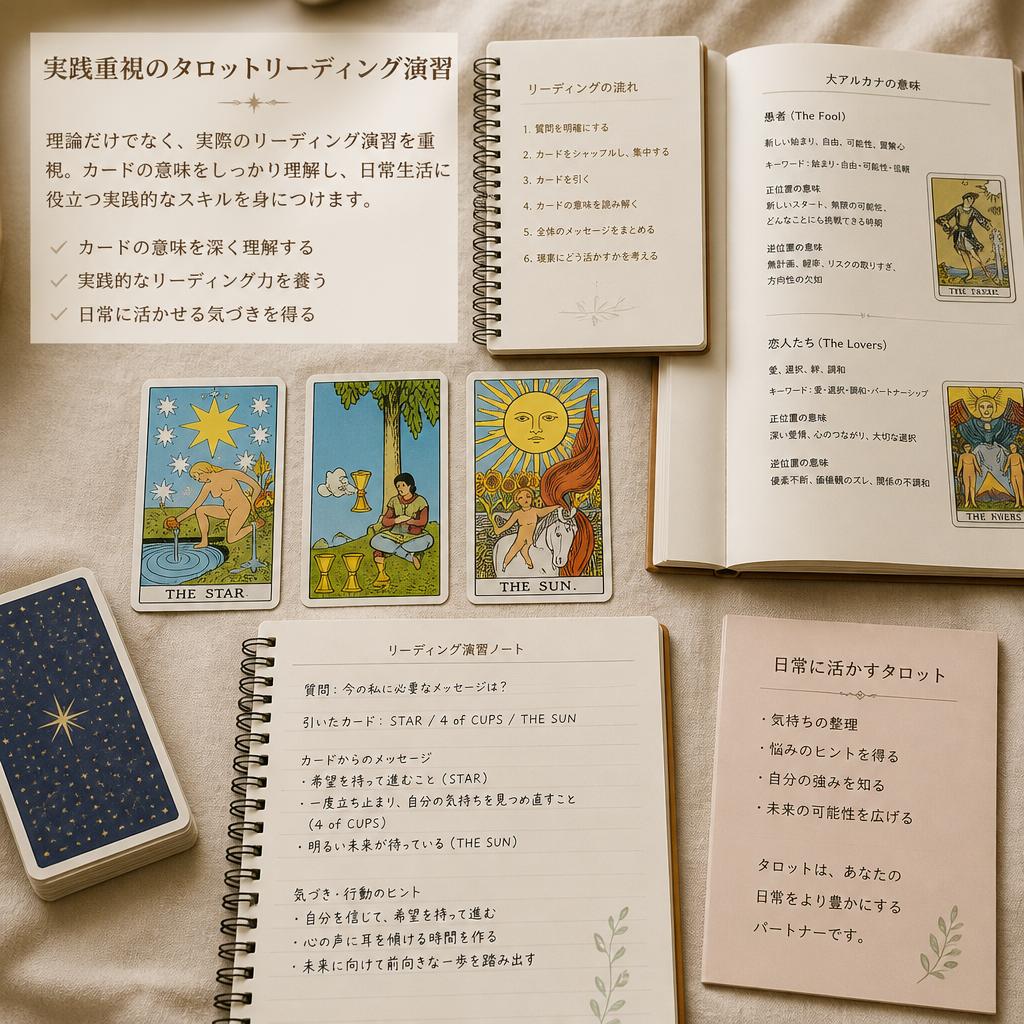 実践重視のタロットリーディング演習
理論だけでなく、実際のリーディング演習を重
視。カードの意味をしっかり理解し、日常生活に
役立つ実践的なスキルを身につけます。
✓ カードの意味を深く理解する
✓ 実践的なリーディング力を養う
✓ 日常に活かせる気づきを得る
リーディングの流れ
1. 質問を明確にする
2. カードをシャッフルし、集中する
3. カードを引く
4. カードの意味を読み解く
5. 全体のメッセージをまとめる
6. 現実にどう活かすかを考える
大アルカナの意味
愚者 (The Fool)
新しい始まり、自由、可能性、冒険心
キーワード：始まり・自由・可能性・
正位置の意味
新しいスタート、無限の可能性、
どんなことにも挑戦できる時期
逆位置の意味
無計画、軽率、リスクの取りすぎ、
方向性の欠如
恋人たち (The Lovers)
愛、選択、絆、調和
キーワード：愛・選択・調和・パートナーシップ
正位置の意味
深い愛情、心のつながり、大切な選択
逆位置の意味
優柔不断、価値観のズレ、関係の不調和
THE
THE
THE STAR.
THE SUN.
リーディング演習ノート
質問：今の私に必要なメッセージは？
引いたカード： STAR / 4 of CUPS / THE SUN
カードからのメッセージ
・希望を持って進むこと (STAR)
・一度立ち止まり、自分の気持ちを見つめ直すこと
(4 of CUPS)
・明るい未来が待っている (THE SUN)
気づき・行動のヒント
・自分を信じて、希望を持って進む
・心の声に耳を傾ける時間を作る
・未来に向けて前向きな一歩を踏み出す
日常に活かすタロット
・気持ちの整理
・悩みのヒントを得る
・自分の強みを知る
・未来の可能性を広げる
タロットは、あなたの
日常をより豊かにする
パートナーです。